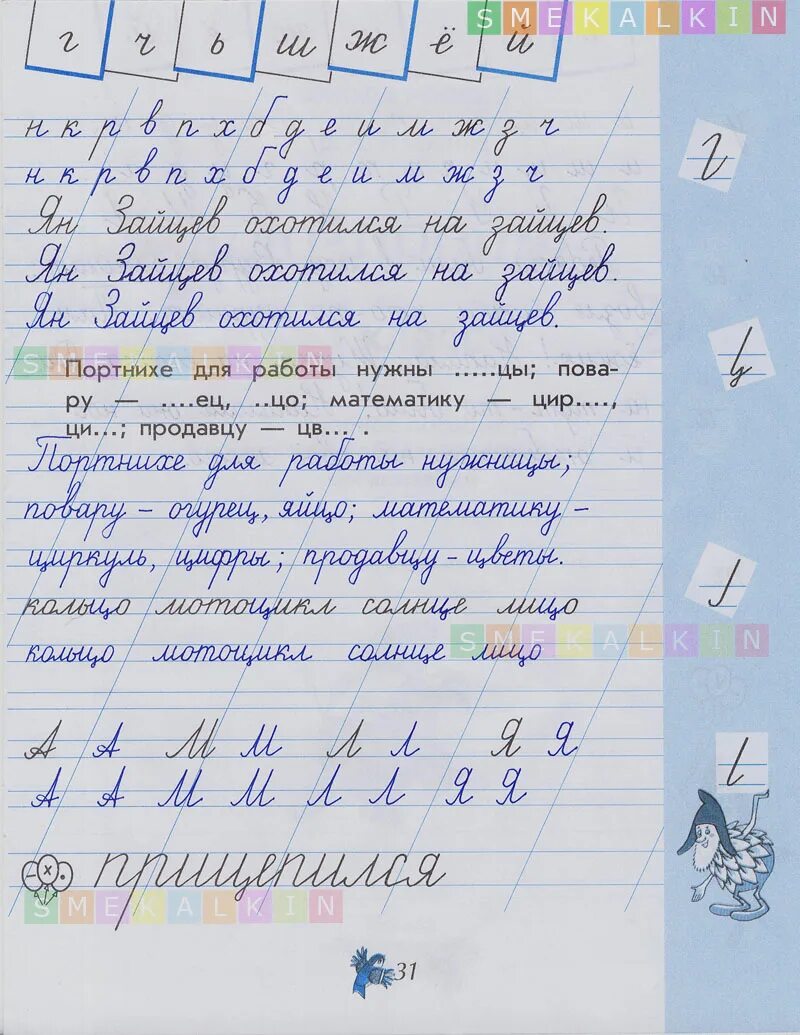 SMEKALKIN
г ч ь ш ж ё й
н к р в п х б д е и м ж з ч
н к р в п х б д е и м ж з ч
Ян Зайцев охотился на зайцев.
Ян Зайцев охотился на зайцев.
Ян Зайцев охотился на зайцев.
SMEKALKIN
Портнихе для работы нужны .....цы; пова-
ру — ....ец, ..цо; математику — цир....,
ци...; продавцу — цв... .
Портнихе для работы нужницы;
повару – огурец, яйцо; математику –
циркуль, цифры; продавцу – цветы.
кольцо мотоцикл солнце лицо
SMEKALKIN
кольцо мотоцикл солнце лицо
А А М М Л Л Я Я
А А М М Л Л Я Я
прищепился
SMEKALKIN
31